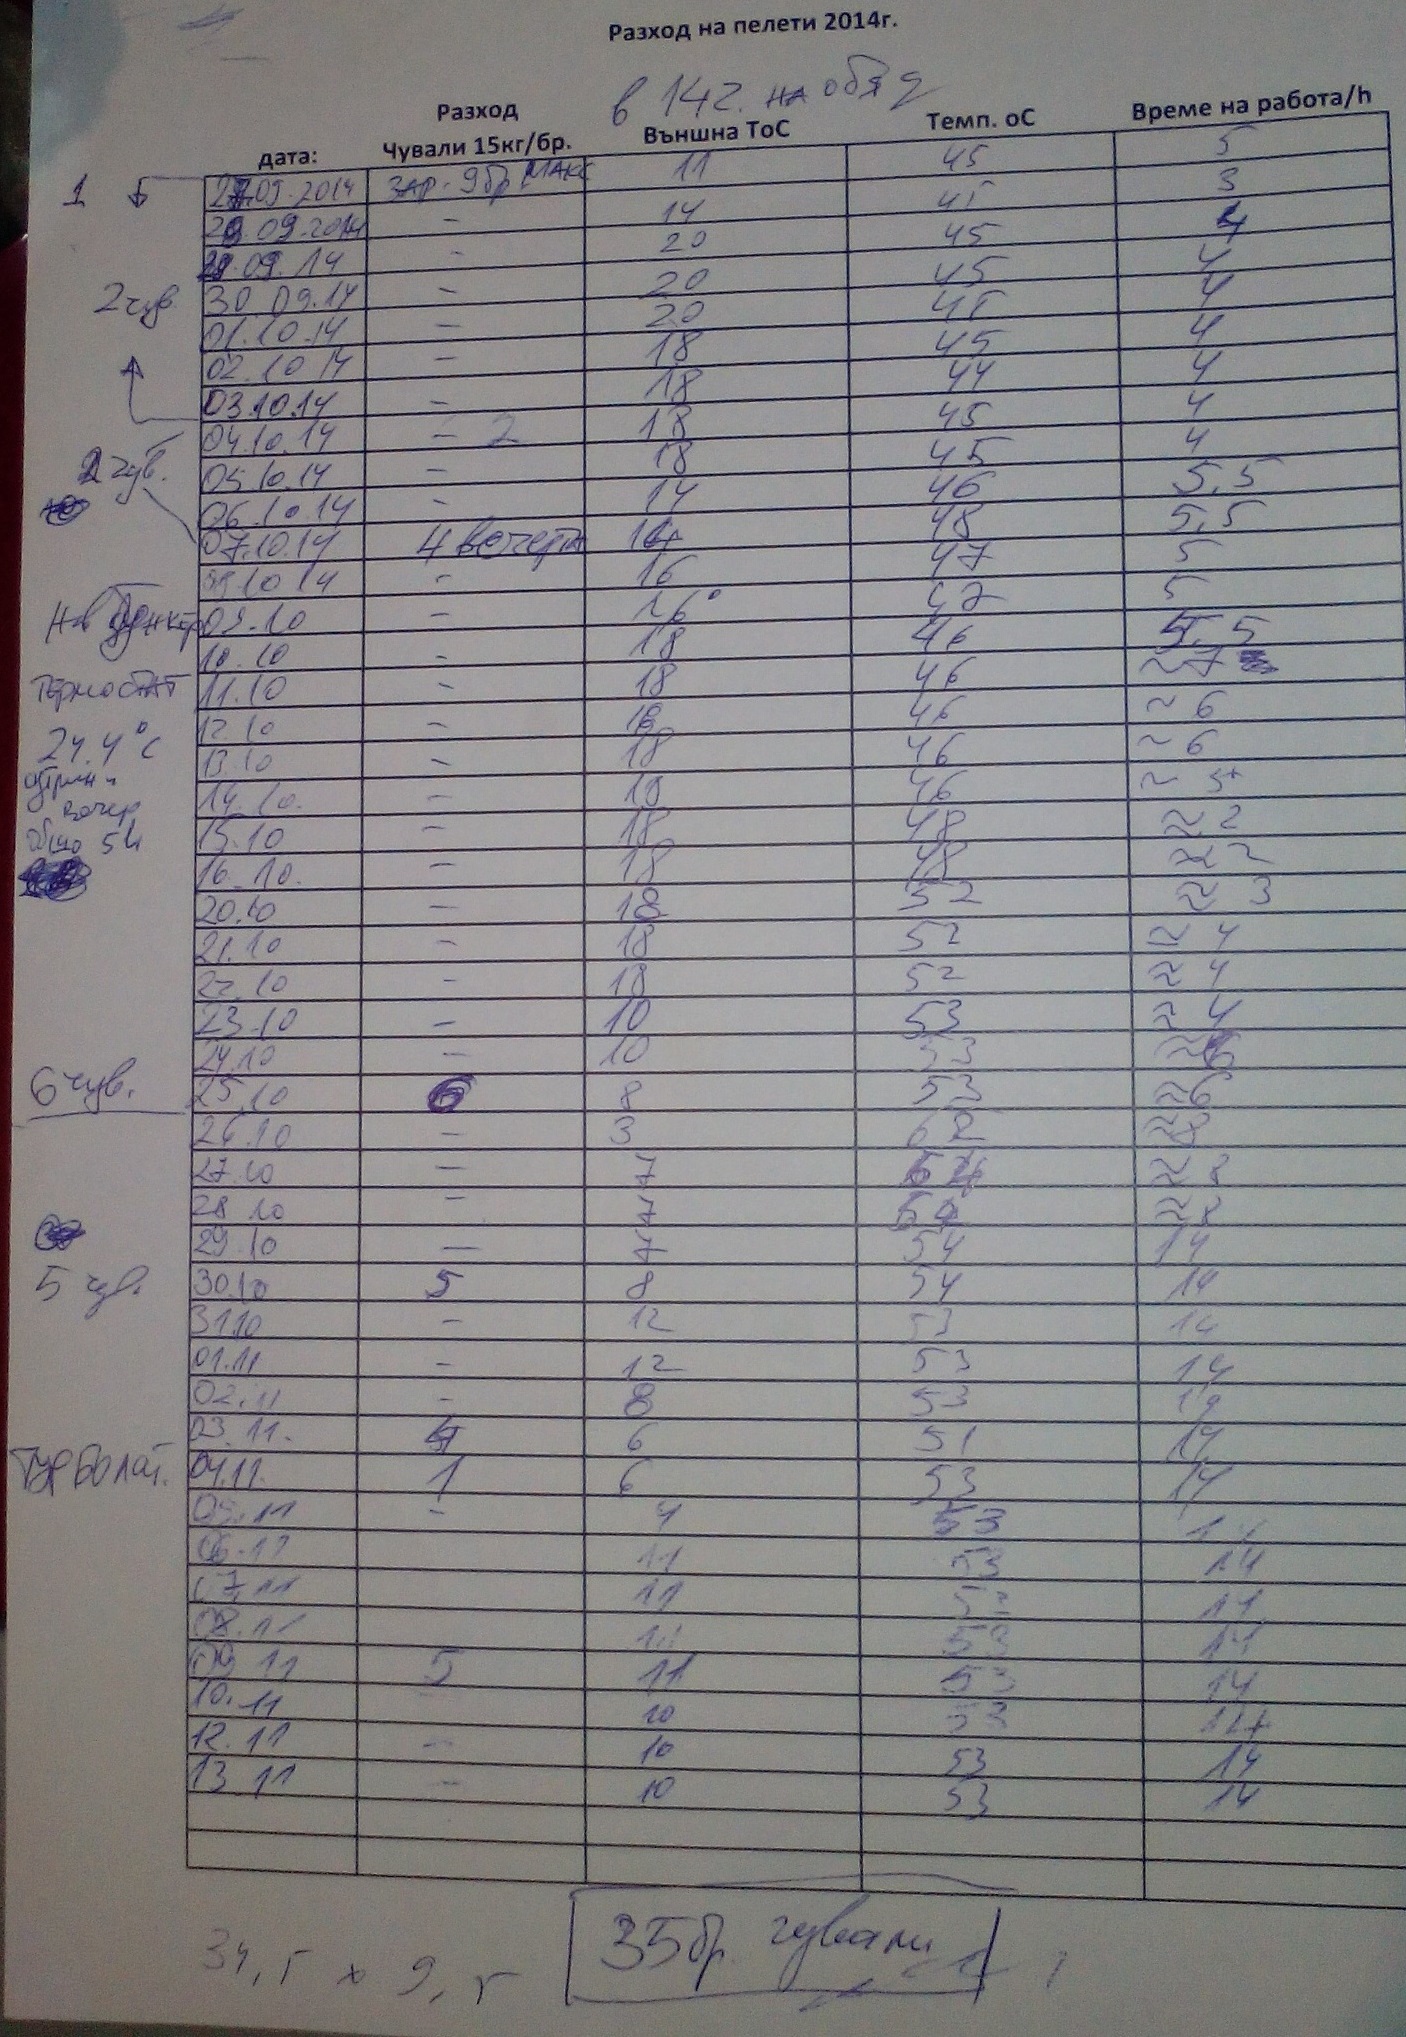 Разход на пелети 2014г.
в 14г. на обяд
Разход
Чували 15кг/бр.
дата: Външна ТоС Темп. оС Време на работа/h
1 27.09.2014 ЗАР. 9бр МАКС 11 45 5
28.09.2014 - 14 45 3
29.09.14 - 20 45 4
2 чув. 30.09.14 - 20 45 4
01.10.14 - 20 45 4
02.10.14 - 18 45 4
03.10.14 - 18 44 4
04.10.14 - 2 18 45 4
2 чув. 05.10.14 - 18 45 4
06.10.14 - 14 46 5,5
07.10.14 4 вечерта 48 5,5
08.10.14 - 16 47 5
09.10 - 16° 47 5
10.10 - 18 46 5,5
термостат 11.10 - 18 46 ~7
12.10 - 18 46 ~6
24.4°С 13.10 - 18 46 ~6
14.10. - 18 46 ~5+
вечер 15.10 - 18 48 ≈2
общо 5ч 16.10. - 18 48 ≈2
20.10 - 18 52 ≈3
21.10 - 18 52 ≈4
22.10 - 18 52 ≈4
23.10 - 10 53 ≈4
24.10 - 10 53 ≈6
6 чув. 25.10 6 8 53 ≈6
26.10 - 3 62 ≈8
27.10 - 7 ≈8
28.10 - 7 ≈8
29.10 - 7 54 14
5 чув. 30.10 5 8 54 14
31.10 - 12 53 14
01.11 - 12 53 14
02.11 - 8 53 14
03.11. 4 6 51 14
Турболат. 04.11. 1 6 53 14
05.11 - 4 53 14
06.11 11 53 14
07.11 11 53 14
08.11 11 53 14
09.11 5 11 53 14
10.11 10 53 14
12.11 - 10 53 14
13.11 - 10 53 14
35бр. чували